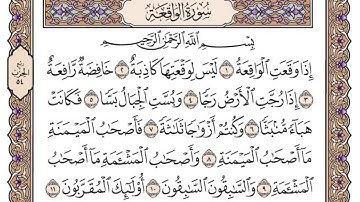 سُورَةُ الوَاقِعَةِ
بِسْمِ ٱللَّهِ ٱلرَّحْمَٰنِ ٱلرَّحِيمِ
إِذَا وَقَعَتِ ٱلْوَاقِعَةُ ١ لَيْسَ لِوَقْعَتِهَا كَاذِبَةٌ ٢ خَافِضَةٌ رَّافِعَةٌ
٣ إِذَا رُجَّتِ ٱلْأَرْضُ رَجًّا ٤ وَبُسَّتِ ٱلْجِبَالُ بَسًّا ٥ فَكَانَتْ
هَبَآءً مُّنۢبَثًّا ٦ وَكُنتُمْ أَزْوَٰجًا ثَلَٰثَةً ٧ فَأَصْحَٰبُ ٱلْمَيْمَنَةِ
مَآ أَصْحَٰبُ ٱلْمَيْمَنَةِ ٨ وَأَصْحَٰبُ ٱلْمَشْـَٔمَةِ مَآ أَصْحَٰبُ
ٱلْمَشْـَٔمَةِ ٩ وَٱلسَّٰبِقُونَ ٱلسَّٰبِقُونَ ١٠ أُو۟لَٰٓئِكَ ٱلْمُقَرَّبُونَ ١١
ربع
الحزب
٥٤